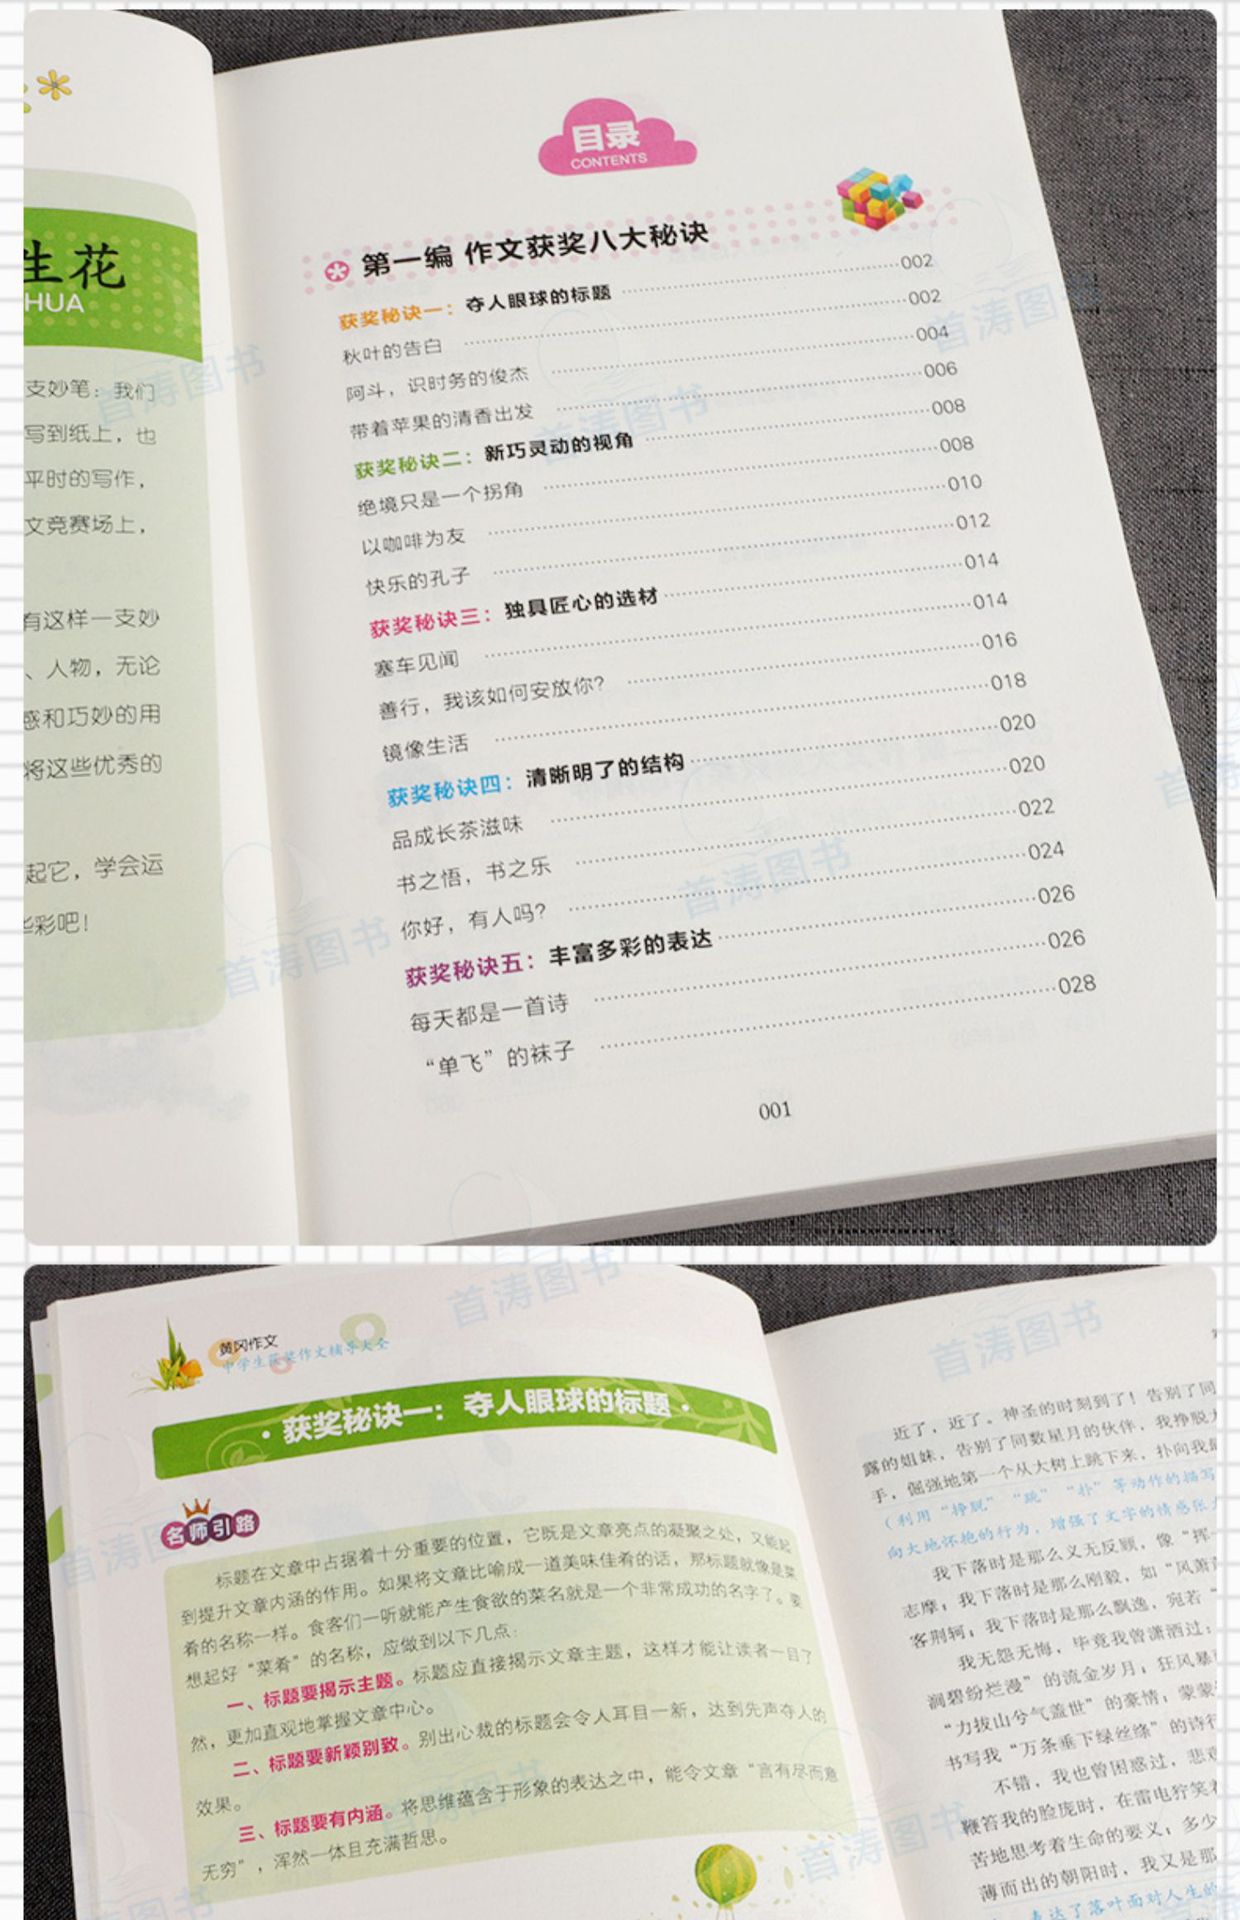 生花
HUA
支妙笔：我们
写到纸上，也
平时的写作，
文竞赛场上，
有这样一支妙
、人物，无论
感和巧妙的用
将这些优秀的
起它，学会运
彩吧！
目录
CONTENTS
第一编 作文获奖八大秘诀
获奖秘诀一：夺人眼球的标题 002
秋叶的告白 002
阿斗，识时务的俊杰 004
带着苹果的清香出发 006
获奖秘诀二：新巧灵动的视角 008
绝境只是一个拐角 008
以咖啡为友 010
快乐的孔子 012
获奖秘诀三：独具匠心的选材 014
塞车见闻 014
善行，我该如何安放你？ 016
镜像生活 018
获奖秘诀四：清晰明了的结构 020
品成长茶滋味 020
书之悟，书之乐 022
你好，有人吗？ 024
获奖秘诀五：丰富多彩的表达 026
每天都是一首诗 026
“单飞”的袜子 028
001
首涛图书
黄冈作文
中学生获奖作文辅导大全
·获奖秘诀一：夺人眼球的标题·
名师引路
标题在文章中占据着十分重要的位置，它既是文章亮点的凝聚之处，又能起
到提升文章内涵的作用。如果将文章比喻成一道美味佳肴的话，那标题就像是菜
肴的名称一样。食客们一听就能产生食欲的菜名就是一个非常成功的名字了。要
想起好“菜肴”的名称，应做到以下几点：
一、标题要揭示主题。标题应直接揭示文章主题，这样才能让读者一目了
然，更加直观地掌握文章中心。
二、标题要新颖别致。别出心裁的标题会令人耳目一新，达到先声夺人的
效果。
三、标题要有内涵。将思维蕴含于形象的表达之中，能令文章“言有尽而意
无穷”，浑然一体且充满哲思。
近了，近了。神圣的时刻到了！告别了同
露的姐妹，告别了同数星月的伙伴，我挣脱
手，倔强地第一个从大树上跳下来，扑向我
（利用“挣脱”“跳”“扑”等动作的描写
向大地怀抱的行为，增强了文字的情感张
我下落时是那么义无反顾，像“挥一
志摩；我下落时是那么刚毅，如“风萧
客荆轲；我下落时是那么飘逸，宛若“
我无怨无悔，毕竟我曾潇洒过：
涧碧纷烂漫”的流金岁月；狂风暴
“力拔山兮气盖世”的豪情；蒙蒙
书写我“万条垂下绿丝绦”的诗行
不错，我也曾困惑过，悲
鞭笞我的脸庞时，在雷电狞笑
苦地思考着生命的要义；多少
薄而出的朝阳时，我又是那
表达了落叶面对人生的